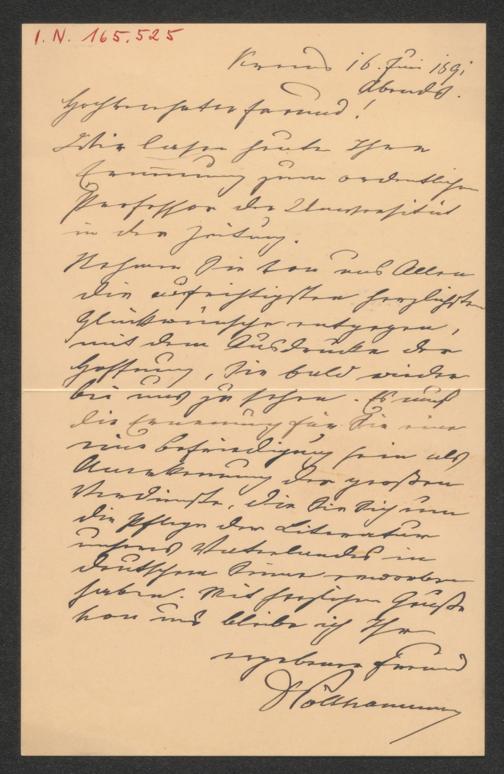 I. N. 165.525
Krems 16. Juni 189
Abends.
Hochverehrter Freund!
Wir lasen heute Ihre
Ernennung zum ordentlichen
Professor der Universität
in der Zeitung.
Nehmen Sie von uns Allen
die aufrichtigsten herzlichsten
Glückwünsche entgegen,
mit dem Ausdrucke der
Hoffnung, Sie bald wieder
bei uns zu sehen. Es muß
die Ernennung für Sie eine
eine Befriedigung sein als
Anerkennung der großen
Verdienste, die Sie sich um
die Pflege der Literatur
unseres Vaterlandes in
deutschem Sinne erworben
haben. Mit herzlichem Gruße
von uns bleibe ich Ihr
ergebener Freund